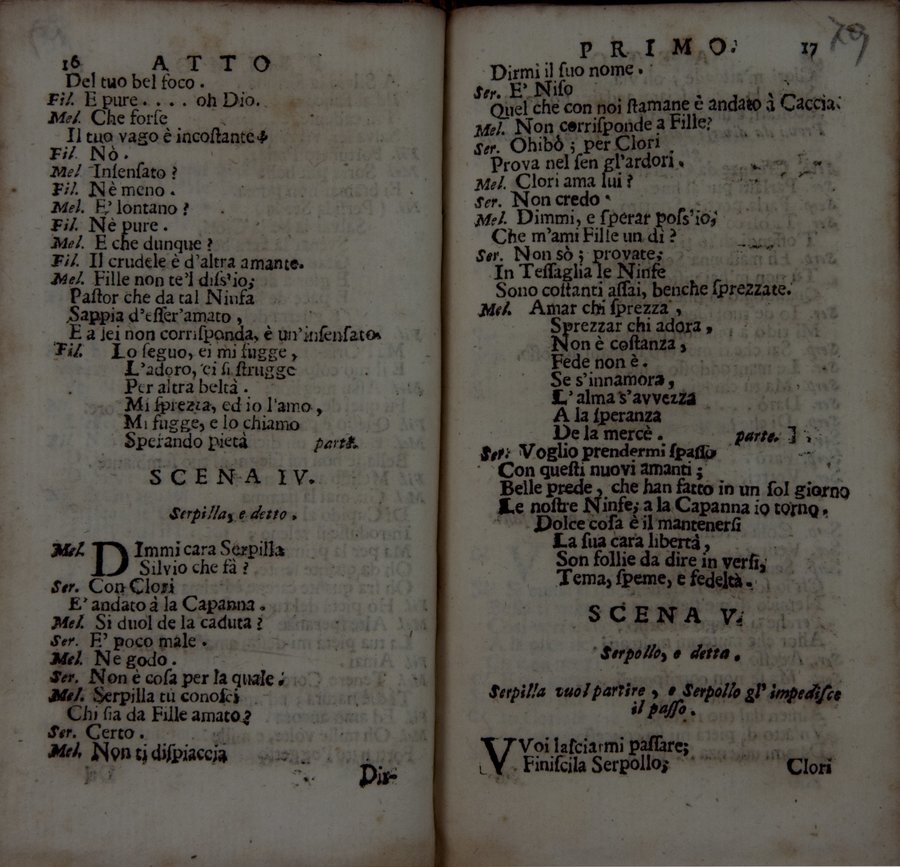 16 ATTO
Del tuo bel foco.
Fil. E pure. . . . oh Dio.
Mel. Che forſe
Il tuo vago è incoſtante?
Fil. Nò.
Mel Inſenſato?
Fil. Nè meno.
Mel. E' lontano?
Fil. Nè pure.
Mel. E che dunque?
Fil. Il crudele è d'altra amante.
Mel. Fille non te'l diſs'io;
Paſtor che da tal Ninfa
Sappia d'eſſer'amato,
E a lei non corriſponda, è un'inſenſato.
Fil. Lo ſeguo, ei mi fugge,
L'adoro, ei ſi ſtrugge
Per altra beltà.
Mi ſprezza, ed io l'amo,
Mi fugge, e lo chiamo
Sperando pietà parte.
SCENA IV.
Serpilla, e detto.
Mel. DImmi cara Serpilla
Silvio che fà?
Ser. Con Clori
E' andato à la Capanna.
Mel. Si duol de la caduta?
Ser. E' poco male.
Mel. Ne godo.
Ser. Non è coſa per la quale.
Mel. Serpilla tù conoſci
Chi ſia da Fille amato?
Ser. Certo.
Mel. Non ti diſpiaccia
Dir-
PRIMO. 17
Dirmi il ſuo nome.
Ser. E' Niſo
Quel che con noi ſtamane è andato à Caccia.
Mel. Non corriſponde a Fille?
Ser. Ohibò; per Clori
Prova nel ſen gl'ardori.
Mel. Clori ama lui?
Ser. Non credo.
Mel. Dimmi, e ſperar poſs'io;
Che m'ami Fille un dì?
Ser. Non sò; provate;
In Teſſaglia le Ninfe
Sono coſtanti aſſai, benche ſprezzate.
Mel. Amar chi ſprezza,
Sprezzar chi adora,
Non è coſtanza,
Fede non è.
Se s'innamora,
L'alma s'avvezza
A la ſperanza
De la mercè. parte. ]
Ser. Voglio prendermi ſpaſſo
Con queſti nuovi amanti;
Belle prede, che han fatto in un ſol giorno
Le noſtre Ninfe; a la Capanna io torno.
Dolce coſa è il mantenerſi
La ſua cara libertà,
Son follie da dire in verſi,
Tema, ſpeme, e fedeltà.
SCENA V.
Serpollo, e detta.
Serpilla vuol partire, e Serpollo gl'impediſce
il paſſo.
VVoi laſciarmi paſſare;
Finiſcila Serpollo;
Clori